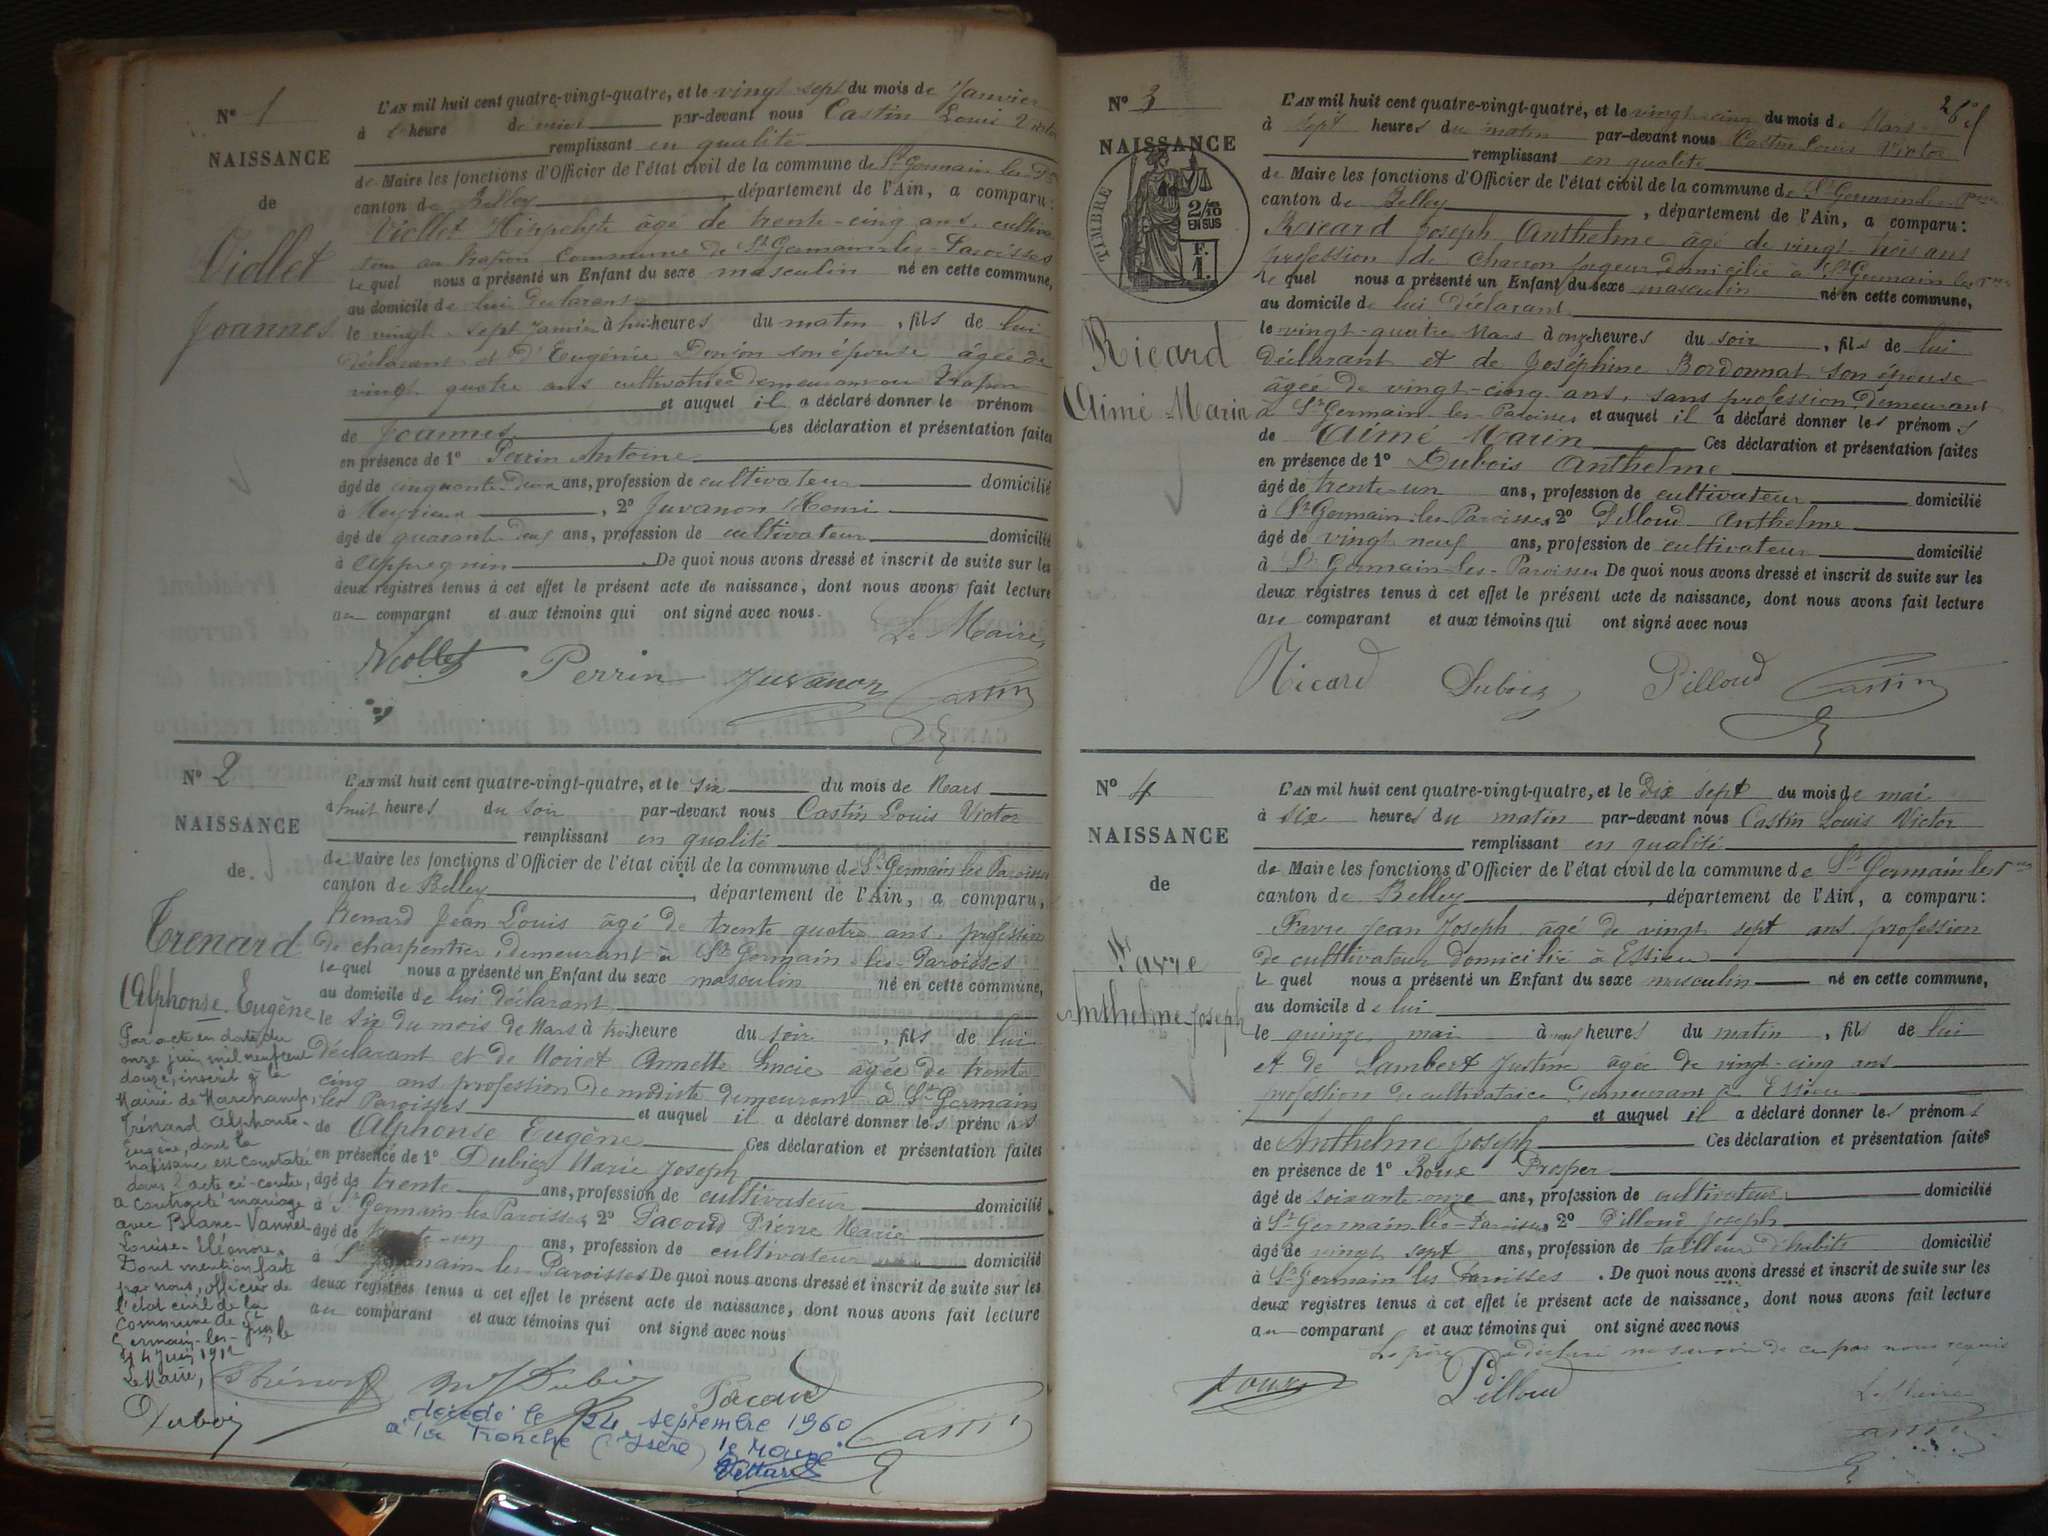 N° 1
NAISSANCE
de
Viollet
Joannes
L'AN mil huit cent quatre-vingt-quatre, et le vingt sept du mois de Janvier
à heure de par-devant nous Castin Louis Victor
remplissant en qualité
de Maire les fonctions d'Officier de l'état civil de la commune de St Germain les
canton de Belley, département de l'Ain, a comparu:
Viollet Hippolyte âgé de trente-cinq ans, cultiva
teur au Frapon Commune de St Germain-les-Paroisses
lequel nous a présenté un Enfant du sexe masculin né en cette commune,
au domicile de lui déclarant
le vingt sept Janvier à heures du matin, fils de lui
déclarant et d'Eugénie son épouse âgée de
vingt quatre ans cultivatrice demeurant au Frapon
et auquel il a déclaré donner le prénom
de Joannes Ces déclaration et présentation faites
en présence de 1° Perrin Antoine
âgé de cinquante ans, profession de cultivateur domicilié
à Meyrieux, 2° Juvanon Henri
âgé de quarante ans, profession de cultivateur domicilié
à Appregnin. De quoi nous avons dressé et inscrit de suite sur les
deux registres tenus à cet effet le présent acte de naissance, dont nous avons fait lecture
au comparant et aux témoins qui ont signé avec nous.
Le Maire,
Viollet Perrin Juvanon Castin
N° 2
NAISSANCE
de
Trenard
Alphonse Eugène
L'AN mil huit cent quatre-vingt-quatre, et le six du mois de Mars
à huit heures du soir par-devant nous Castin Louis Victor
remplissant en qualité
de Maire les fonctions d'Officier de l'état civil de la commune de St Germain les Paroisses
canton de Belley, département de l'Ain, a comparu,
Trenard Jean Louis âgé de trente quatre ans, profession
de charpentier, demeurant à St Germain les-Paroisses
lequel nous a présenté un Enfant du sexe masculin né en cette commune,
au domicile de lui déclarant
le six du mois de Mars à heure du soir, fils de lui
déclarant et de Moiret Annette Lucie âgée de trente
cinq ans profession de modiste demeurant à St Germain
les Paroisses et auquel il a déclaré donner les prénoms
de Alphonse Eugène Ces déclaration et présentation faites
en présence de 1° Dubiez Marie Joseph
âgé de trente ans, profession de cultivateur domicilié
à St Germain les Paroisses, 2° Pacoud Pierre Marie
âgé de ans, profession de cultivateur domicilié
à St Germain-les-Paroisses De quoi nous avons dressé et inscrit de suite sur les
deux registres tenus à cet effet le présent acte de naissance, dont nous avons fait lecture
au comparant et aux témoins qui ont signé avec nous
Pacoud
décédé le 24 septembre 1960
à la Tronche (Isère) le Maire
Par acte en date du
onze juin mil neuf cent
douze, inscrit à la
Mairie de Marchamp,
Trénard Alphonse-
Eugène, dont la
naissance est constatée
dans l'acte ci-contre,
a contracté mariage
avec Blanc-Vannet
Louise-Eléonore.
Dont mention faite
par nous, officier de
l'état civil de la
Commune de St
Germain-les- le
14 Juin 1912
Le Maire,
Dubois
N° 3
NAISSANCE
TIMBRE
2/10
EN SUS
F.
1.
Ricard
Aimé Marin
L'AN mil huit cent quatre-vingt-quatre, et le vingt-cinq du mois de Mars
à sept heures du matin par-devant nous Castin Louis Victor
remplissant en qualité
de Maire les fonctions d'Officier de l'état civil de la commune de St Germain les
canton de Belley, département de l'Ain, a comparu:
Ricard Joseph Anthelme âgé de vingt trois ans
profession de charron forgeur domicilié à St Germain les
lequel nous a présenté un Enfant du sexe masculin né en cette commune,
au domicile de lui déclarant
le vingt-quatre Mars à onze heures du soir, fils de lui
déclarant et de Joséphine Bordonnat son épouse
âgée de vingt-cinq ans, sans profession, demeurant
à St Germain-les-Paroisses et auquel il a déclaré donner les prénoms
de Aimé Marin Ces déclaration et présentation faites
en présence de 1° Dubois Anthelme
âgé de trente-un ans, profession de cultivateur domicilié
à St Germain-les Paroisses 2° Pilloud Anthelme
âgé de vingt neuf ans, profession de cultivateur domicilié
à St Germain-les-Paroisses De quoi nous avons dressé et inscrit de suite sur les
deux registres tenus à cet effet le présent acte de naissance, dont nous avons fait lecture
au comparant et aux témoins qui ont signé avec nous
Ricard Dubois Pilloud Castin
N° 4
NAISSANCE
de
Favre
Anthelme-Joseph
L'AN mil huit cent quatre-vingt-quatre, et le Dix sept du mois de mai
à six heures du matin par-devant nous Castin Louis Victor
remplissant en qualité
de Maire les fonctions d'Officier de l'état civil de la commune de St Germain les
canton de Belley, département de l'Ain, a comparu:
Favre Jean Joseph âgé de vingt sept ans profession
de cultivateur domicilié à Essieu
lequel nous a présenté un Enfant du sexe masculin né en cette commune,
au domicile de lui
le quinze mai à heures du matin, fils de lui
et de Lambert Justine âgée de vingt-cinq ans
profession de cultivatrice demeurant à Essieu
et auquel il a déclaré donner les prénoms
de Anthelme Joseph Ces déclaration et présentation faites
en présence de 1° Roux Prosper
âgé de soixante onze ans, profession de cultivateur domicilié
à St Germain les-Paroisses 2° Pilloud Joseph
âgé de vingt sept ans, profession de tailleur d'habits domicilié
à St Germain les Paroisses. De quoi nous avons dressé et inscrit de suite sur les
deux registres tenus à cet effet le présent acte de naissance, dont nous avons fait lecture
au comparant et aux témoins qui ont signé avec nous
Le père a déclaré ne savoir de ce par nous requis
Pilloud
Le Maire